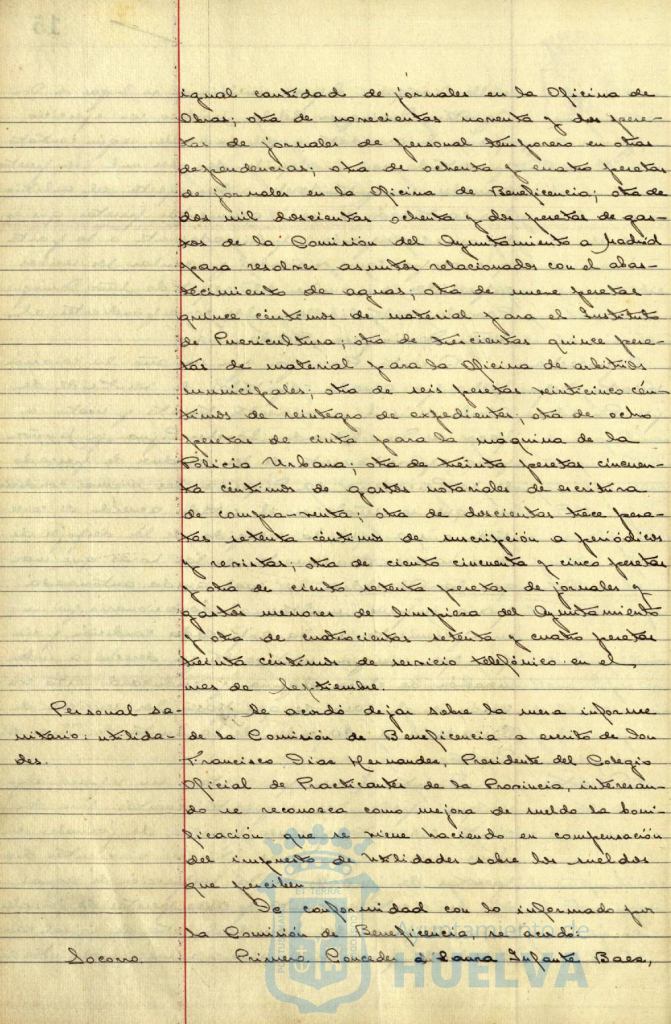 igual cantidad de jornales en la Oficina de
Obras; otra de novecientas noventa y dos pese-
tas de jornales de personal temporero en otras
dependencias; otra de ochenta y cuatro pesetas
de jornales en la Oficina de Beneficencia; otra de
dos mil doscientas ochenta y dos pesetas de gas-
tos de la Comisión del Ayuntamiento a Madrid
para resolver asuntos relacionados con el abas-
tecimiento de aguas; otra de nueve pesetas
quince céntimos de material para el Instituto
de Puericultura; otra de trescientas quince pese-
tas de material para la Oficina de arbitrios
municipales; otra de seis pesetas veinticinco cén-
timos de reintegro de expedientes; otra de ocho
pesetas de cinta para la máquina de la
Policía Urbana; otra de treinta pesetas cincuen-
ta céntimos de gastos notariales de escritura
de compra-venta; otra de doscientas trece pese-
tas setenta céntimos de suscripción a periódicos
y revistas; otra de ciento cincuenta y cinco pesetas
y otra de ciento setenta pesetas de jornales y
gastos menores de limpieza del Ayuntamiento
y otra de cuatrocientas setenta y cuatro pesetas
treinta céntimos de servicio telefónico en el
mes de Septiembre.
Personal sa-
nitario: utilida-
des.
Se acordó dejar sobre la mesa informe
de la Comisión de Beneficencia a escrito de Don
Francisco Diaz Hernandez, Presidente del Colegio
Oficial de Practicantes de la Provincia, interesan-
do se reconozca como mejora de sueldo la boni-
ficación que se viene haciendo en compensación
del impuesto de Utilidades sobre los sueldos
que perciben
De conformidad con lo informado por
la Comisión de Beneficencia, se acordó:
Socorro.
Primero. Conceder a Laura Infante Baez,
Ayuntamiento de
HUELVA